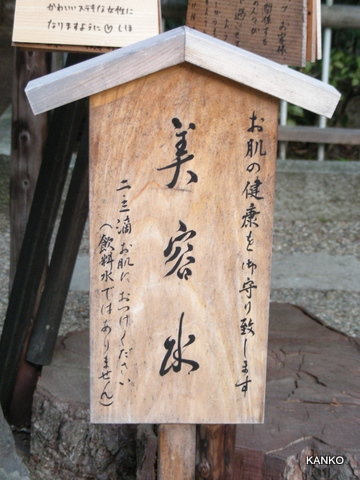 かわいいステキな女性に
なりますように♡ しほ
お肌の健康を御守り致します
美容水
二、三滴 お肌に おつけください
(飲料水ではありません)
KANKO